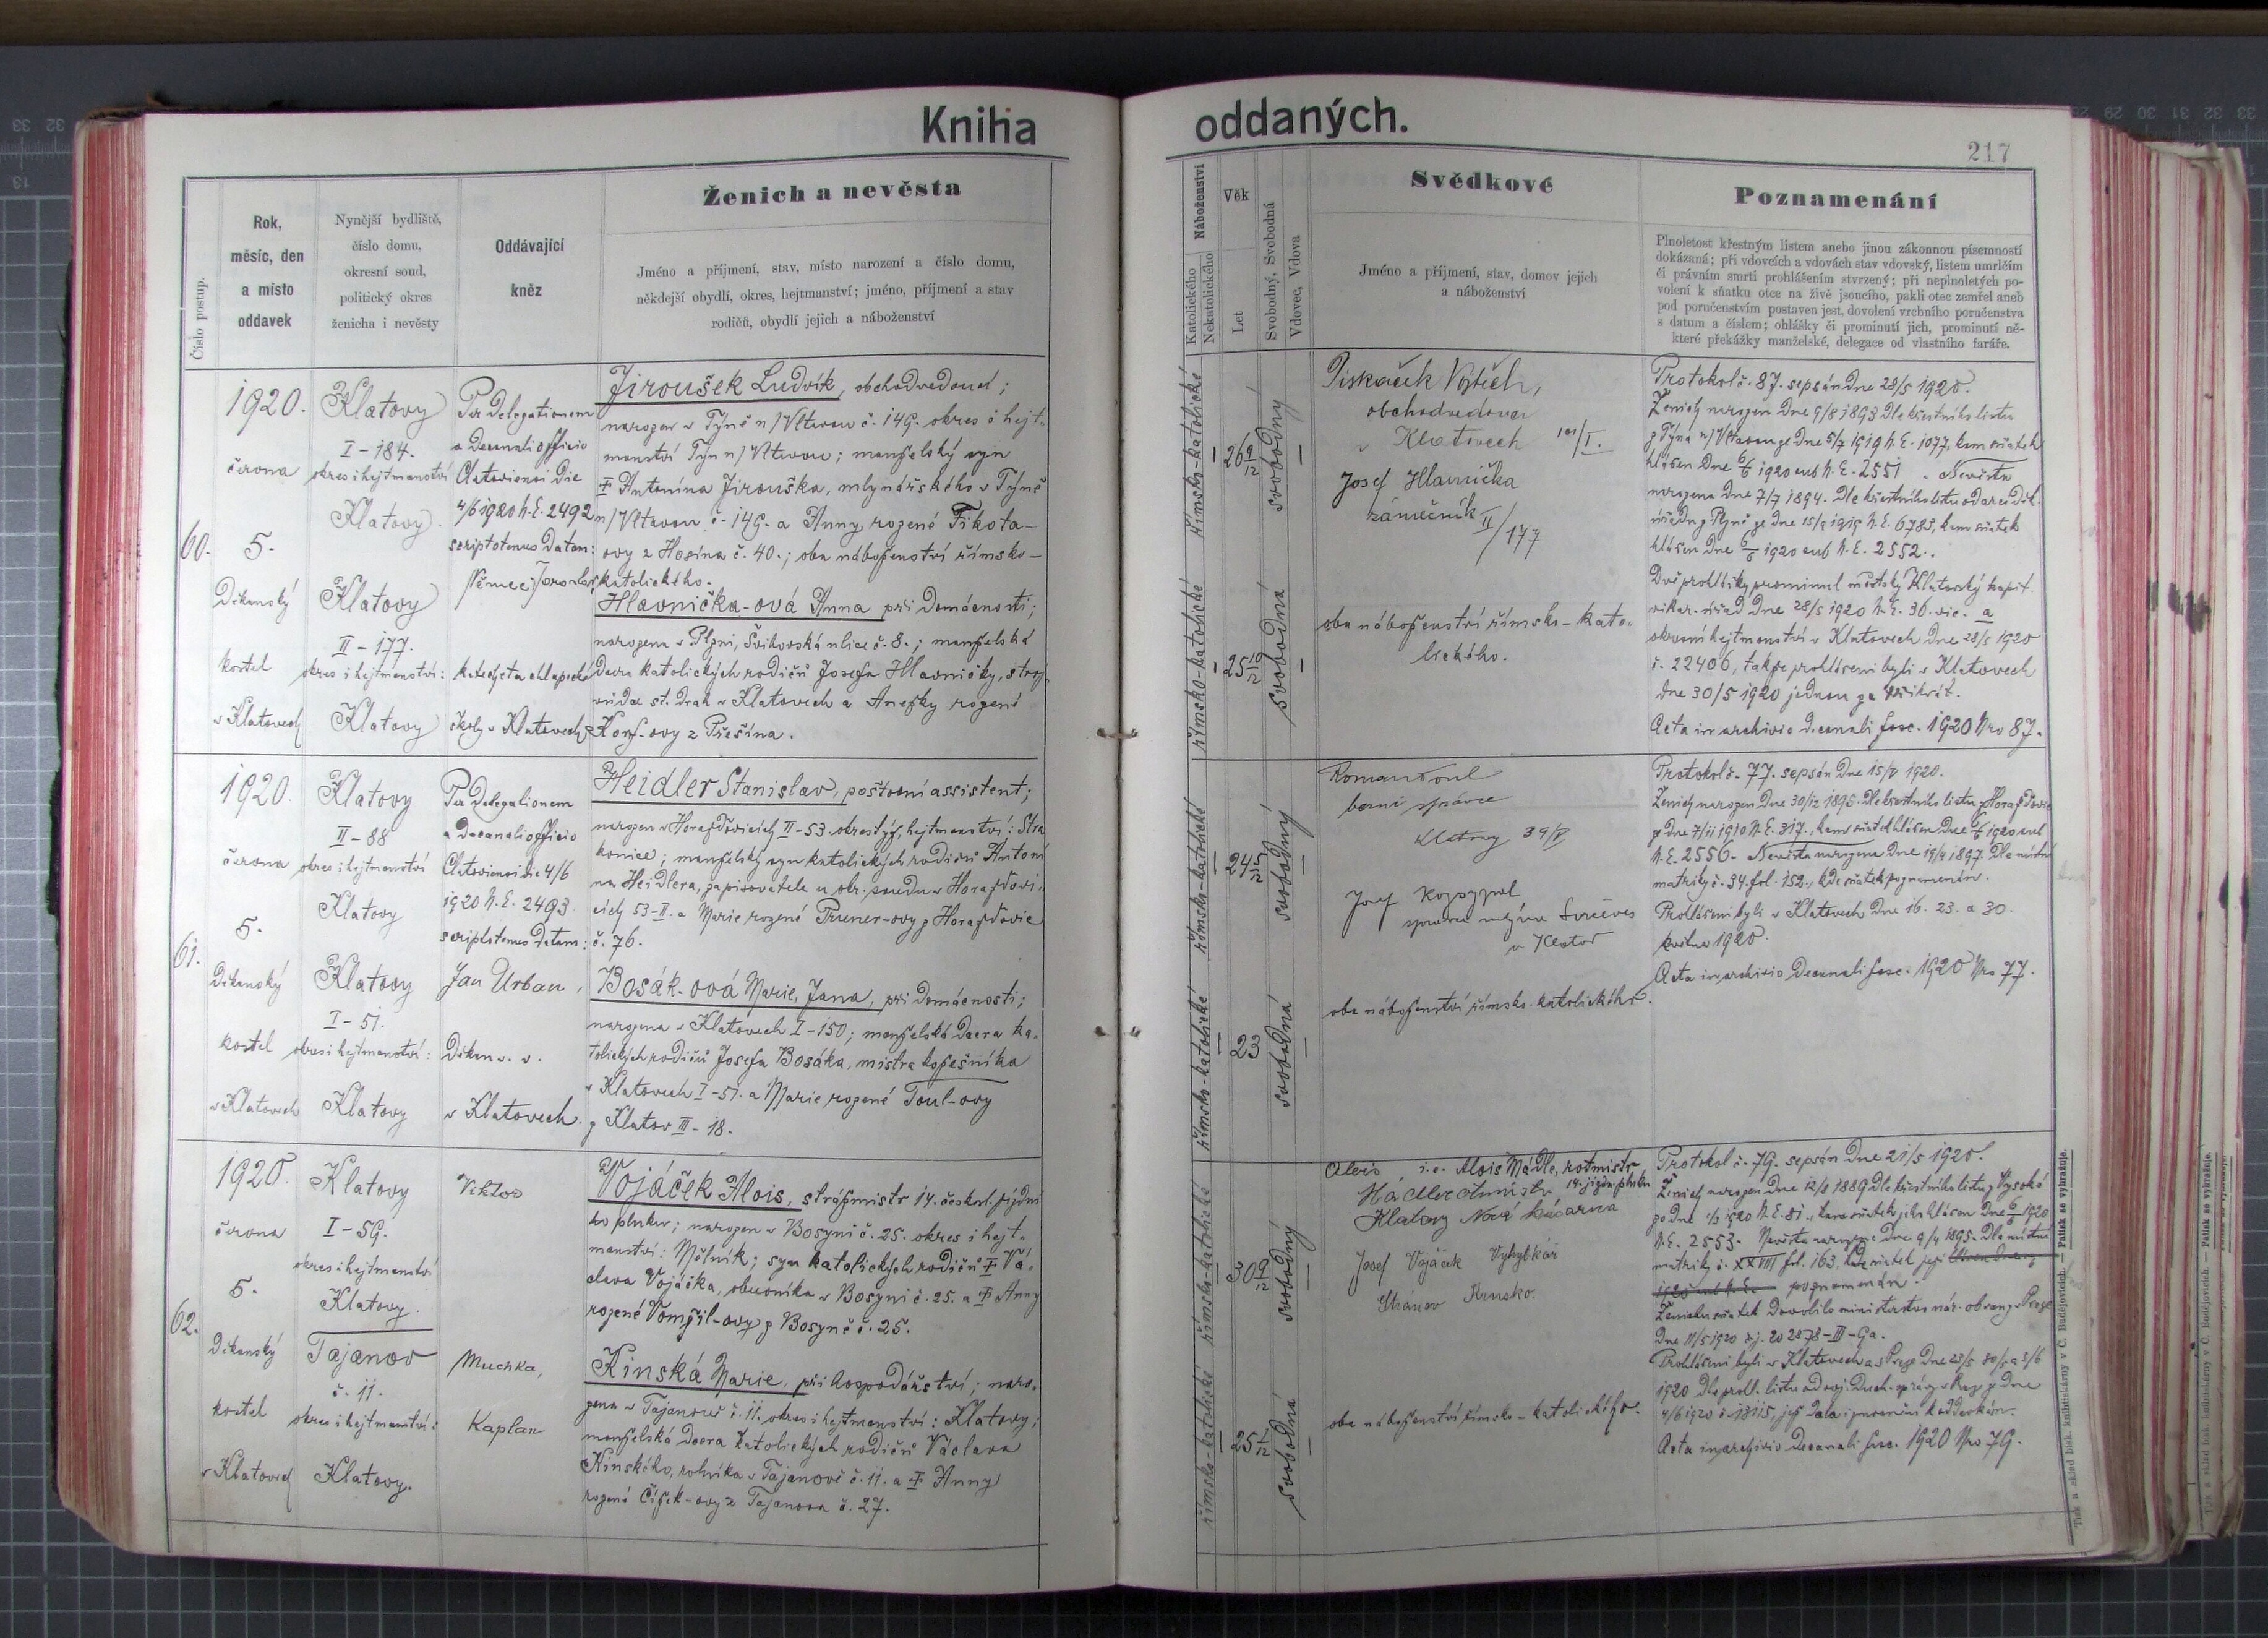 Kniha
oddaných.
217
Číslo postup.
Rok,
měsíc, den
a místo
oddavek
Nynější bydliště,
číslo domu,
okresní soud,
politický okres
ženicha i nevěsty
Oddávající
kněz
Ženich a nevěsta
Jméno a příjmení, stav, místo narození a číslo domu,
někdejší obydlí, okres, hejtmanství; jméno, příjmení a stav
rodičů, obydlí jejich a náboženství
60.
1920.
června
5.
Děkanský
kostel
v Klatovech
Klatovy
I - 184.
okres i hejtmanství
Klatovy.
Klatovy
II - 177.
okres i hejtmanství:
Klatovy
Per Delegationem
a Decanali officio
Clatoviensi die
4/6 1920 N.E. 2492
scriptotenus datam:
Němec Jaroslav,
katecheta chlapecké
školy v Klatovech
Jiroušek Ludvík, obchodvedoucí;
narozen v Týně n/Vltavou č. 149. okres i hejt-
manství Týn n/Vltavou; manželský syn
Antonína Jirouška, mlynářského v Týně
n/Vltavou č. 149. a Anny rozené Fikota-
ovy z Hosína č. 40.; oba náboženství římsko-
katolického.
Hlavnička-ová Anna při domácnosti;
narozena v Plzni, Švihovská ulice č. 8.; manželská
dcera katolických rodičů Josefa Hlavničky, stroj-
vůdce st. drah v Klatovech a Anežky rozené
-ovy z Přešína.
61.
1920.
června
5.
Děkanský
kostel
v Klatovech
Klatovy
II - 88
okres i hejtmanství
Klatovy
Klatovy
I - 51.
okres i hejtmanství:
Klatovy
Per Delegationem
a Decanali officio
Clatoviensi die 4/6
1920 N.E. 2493
scriptotenus datam:
Jan Urban,
Děkan v. v.
v Klatovech.
Heidler Stanislav, poštovní assistent;
narozen v Horažďovicích II - 53. okres týž, hejtmanství: Stra
konice; manželský syn katolických rodičů Antoní
na Heidlera, zapisovatele u okr. soudu v Horažďovi-
cích 53-II. a Marie rozené Pruner-ovy z Horažďovic
č. 76.
Bosák-ová Marie, Jana, při domácnosti;
narozena v Klatovech I - 150; manželská dcera ka-
tolických rodičů Josefa Bosáka, mistra kožešníka
v Klatovech I - 51. a Marie rozené Toul-ovy
z Klatov III - 18.
62.
1920.
června
5.
Děkanský
kostel
v Klatovech
Klatovy
I - 59.
okres i hejtmanství
Klatovy.
Tajanov
č. 11.
okres i hejtmanství:
Klatovy.
Viktor
Muchka,
Kaplan
Vojáček Alois, strážmistr 14. českosl. jízdní
ho pluku; narozen v Bosyni č. 25. okres i hejt-
manství: Mělník; syn katolických rodičů Vá-
clava Vojáčka, obuvníka v Bosyni č. 25. a Anny
rozené Vomžil-ovy z Bosyně č. 25.
Kinská Marie, při hospodářství; naro-
zena v Tajanově č. 11. okres i hejtmanství: Klatovy;
manželská dcera katolických rodičů Václava
Kinského, rolníka v Tajanově č. 11. a Anny
rozené Čížek-ovy z Tajanova č. 27.
Náboženství
Katolického
Nekatolického
Věk
Let
Svobodný, Svobodná
Vdovec, Vdova
Svědkové
Jméno a příjmení, stav, domov jejich
a náboženství
Poznamenání
Plnoletost křestným listem anebo jinou zákonnou písemností
dokázaná; při vdovcích a vdovách stav vdovský, listem umrlčím
či právním smrti prohlášením stvrzený; při neplnoletých po-
volení k sňatku otce na živě jsoucího, pakli otec zemřel aneb
pod poručenstvím postaven jest, dovolení vrchního poručenstva
s datum a číslem; ohlášky či prominutí jich, prominutí ně-
které překážky manželské, delegace od vlastního faráře.
římsko-katolické
26 9/12
svobodný
římsko-katolické
25 10/12
svobodná
Piskáček Vojtěch,
obchodvedoucí
v Klatovech /I.
Josef Hlavnička
zámečník II/177
oba náboženství římsko-kato-
lického.
Protokol č. 87. sepsán dne 28/5 1920.
Ženich narozen dne 9/8 1893 dle křestního listu
z Týna n/Vltavou ze dne 5/7 1919 N.E. 1077, kam sňatek
hlášen dne 6/6 1920 sub N.E. 2551. Nevěsta
narozena dne 7/7 1894. Dle křestního listu od arciděk.
úřadu z Plzně ze dne 15/9 1919 N.E. 6783, kam sňatek
hlášen dne 6/6 1920 sub N.E. 2552.
Dvě prohlášky prominul městský Klatovský kapit.
vikar. úřad dne 28/5 1920 N.E. 36. vic. a
okresní hejtmanství v Klatovech dne 28/5 1920
č. 22406, takže prohlášeni byli v Klatovech
dne 30/5 1920 jednou za třikrát.
Acta in archivio decanali fasc. 1920 Nro 87.
římsko-katolické
24 5/12
svobodný
římsko-katolické
23
svobodná
Roman Toul
berní správce
Klatovy 39/V
Josef
správce mlýna
u Klatov
oba náboženství římsko-katolického.
Protokol č. 77. sepsán dne 15/V 1920.
Ženich narozen dne 30/12 1895. Dle křestního listu z Horažďovic
z dne 7/11 1910 N.E. 317., kam sňatek hlášen dne 6/6 1920 sub
N.E. 2556. Nevěsta narozena dne 19/4 1897. Dle místní
matriky č. 34. fol. 152., kde sňatek poznamenán.
Prohlášeni byli v Klatovech dne 16. 23. a 30.
května 1920.
Acta in archivio Decanali fasc. 1920 Nro 77.
římsko-katolické
30 9/12
svobodný
římsko-katolické
25 1/12
svobodná
Alois i.e. Alois Mádle, rotmistr
14. jízdn. pluku
Klatovy Nová kasárna
Josef Vojáček Vyhybkář
Stránov Krnsko.
oba náboženství římsko-katolického.
Protokol č. 79. sepsán dne 21/5 1920.
Ženich narozen dne 12/8 1889 Dle křestního listu z Vysoké
ze dne 1/3 1920 N.E. 81, kam sňatek jeho hlášen dne 6/6 1920
N.E. 2553. Nevěsta narozena dne 9/4 1895. Dle místní
matriky č. XXVIII fol. 163, kde sňatek její
poznamenán.
Ženichu sňatek dovolilo ministerstvo nár. obrany v Praze
dne 11/5 1920 čj. 202878-III-9a.
Prohlášeni byli v Klatovech a v Praze dne 23/5 30/5 a 3/6
1920 Dle prohl. listu od voj. duch. správy v Praze z dne
4/6 1920 č. 13115, jež dala i k oddavkám.
Acta in archivio Decanali fasc. 1920 Nro 79.
Tisk a sklad bisk. knihtiskárny v Č. Budějovicích. — Patisk se vyhražuje.